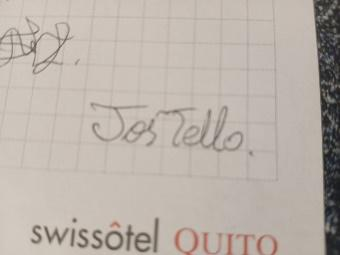 Jos Tello.
swissôtel QUITO